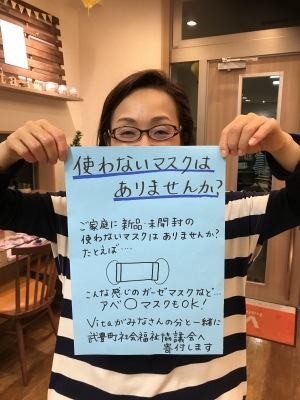 使わないマスクは
ありませんか?
ご家庭に 新品・未開封の
使わないマスクは ありませんか?
たとえば....
こんな感じのガーゼマスクなど...
アベ〇マスクもOK!
Vitaがみなさんの分と一緒に
武豊町社会福祉協議会へ
寄付します